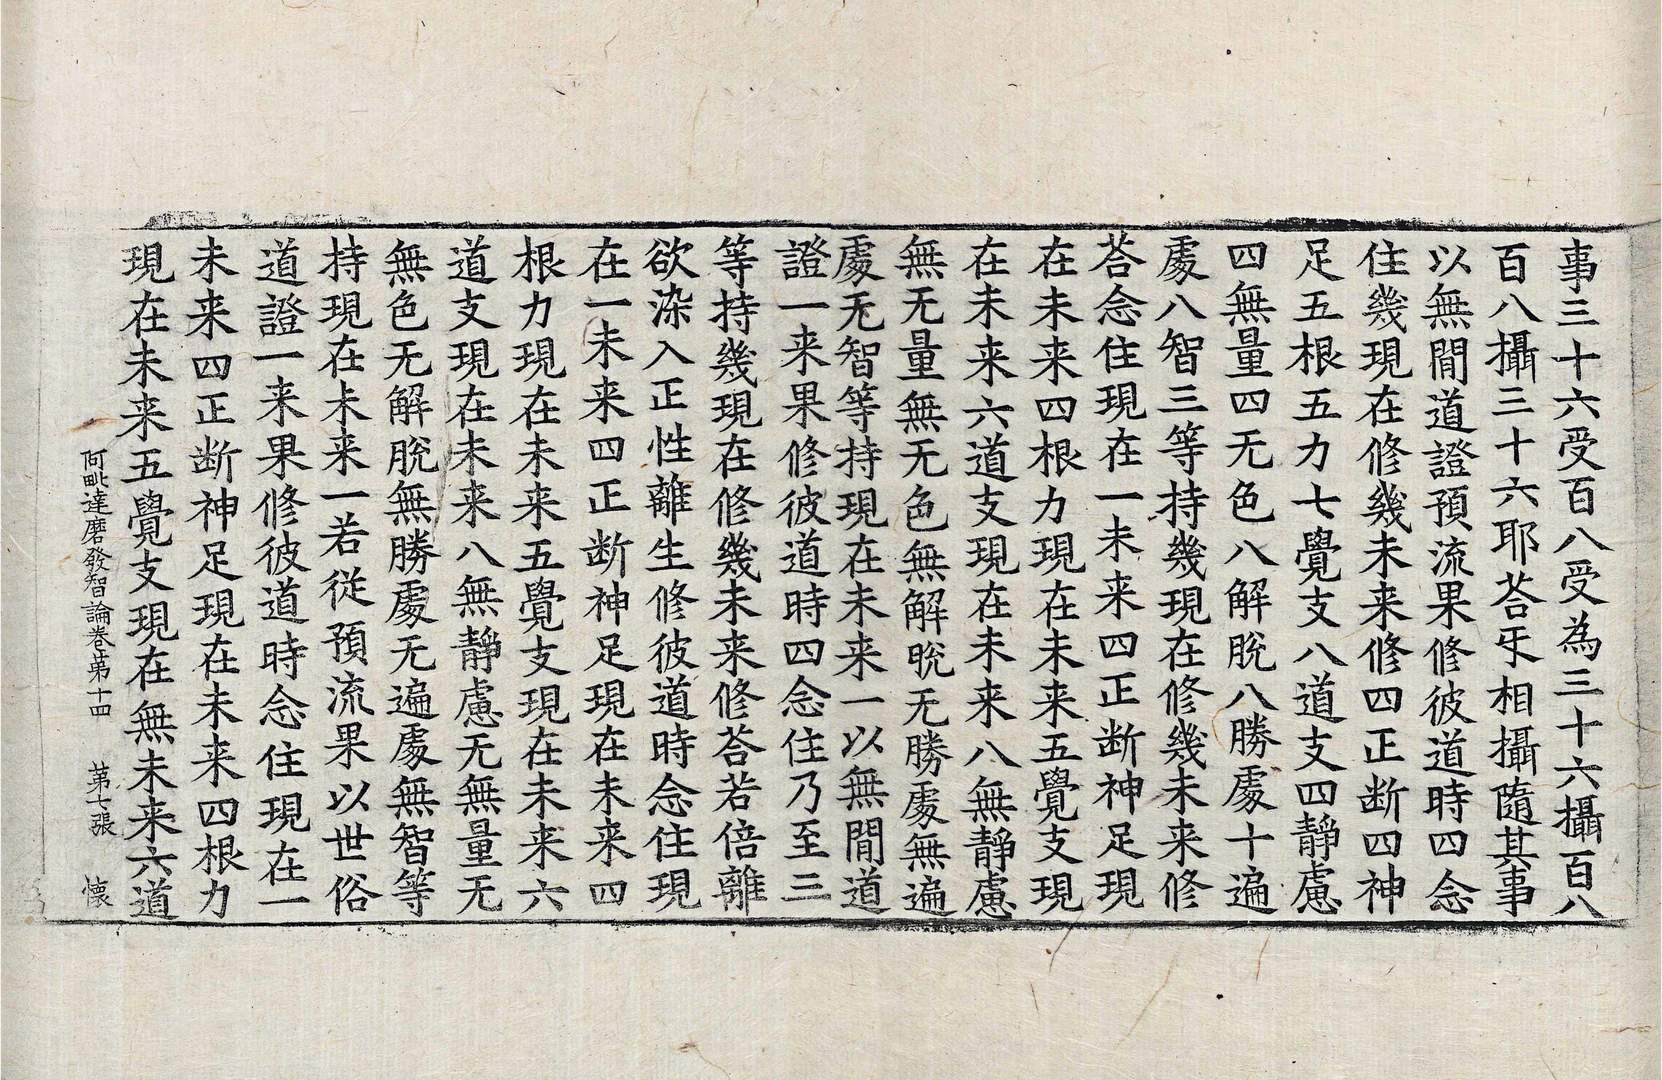 事三十六受百八受為三十六攝百八
百八攝三十六耶荅㸦相攝隨其事
以無閒道證預流果修彼道時四念
住幾現在修幾未来修四正断四神
足五根五力七覺支八道支四靜慮
四無量四无色八解脫八勝處十遍
處八智三等持幾現在修幾未来修
荅念住現在一未来四正断神足現
在未来四根力現在未来五覺支現
在未来六道支現在未来八無靜慮
無无量無无色無解脫无勝處無遍
處无智等持現在未来一以無閒道
證一来果修彼道時四念住乃至三
等持幾現在修幾未来修荅若倍離
欲染入正性離生修彼道時念住現
在一未来四正断神足現在未来四
根力現在未来五覺支現在未来六
道支現在未来八無靜慮无無量无
無色无解脫無勝處无遍處無智等
持現在未来一若從預流果以世俗
道證一来果修彼道時念住現在一
未来四正断神足現在未来四根力
現在未来五覺支現在無未来六道
阿毗達磨發智論卷苐十四 苐七張 懷